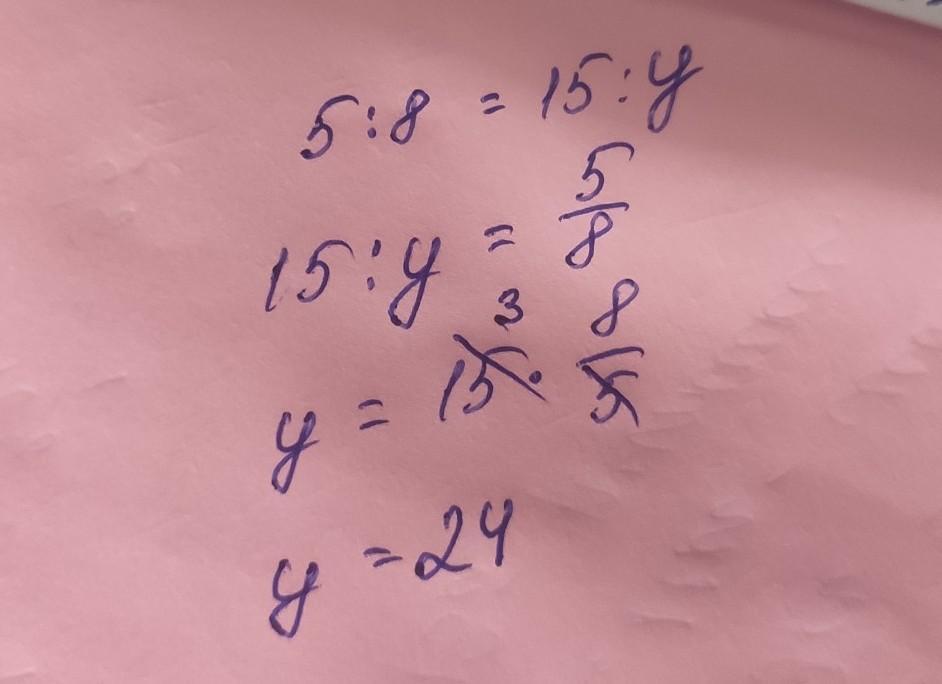 5:8 = 15:y
15:y = 5/8
y = 15 3 · 8/5
y = 24